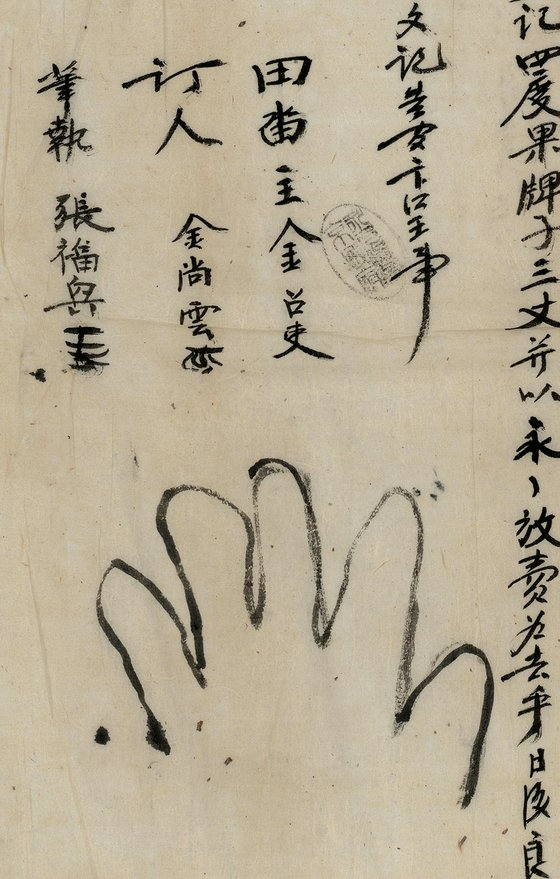 記四度果牌子三丈并以永〻放賣為去乎日後良
文記告官卞呈事
田畓主金召史
訂人 金尚雲
筆執 張福